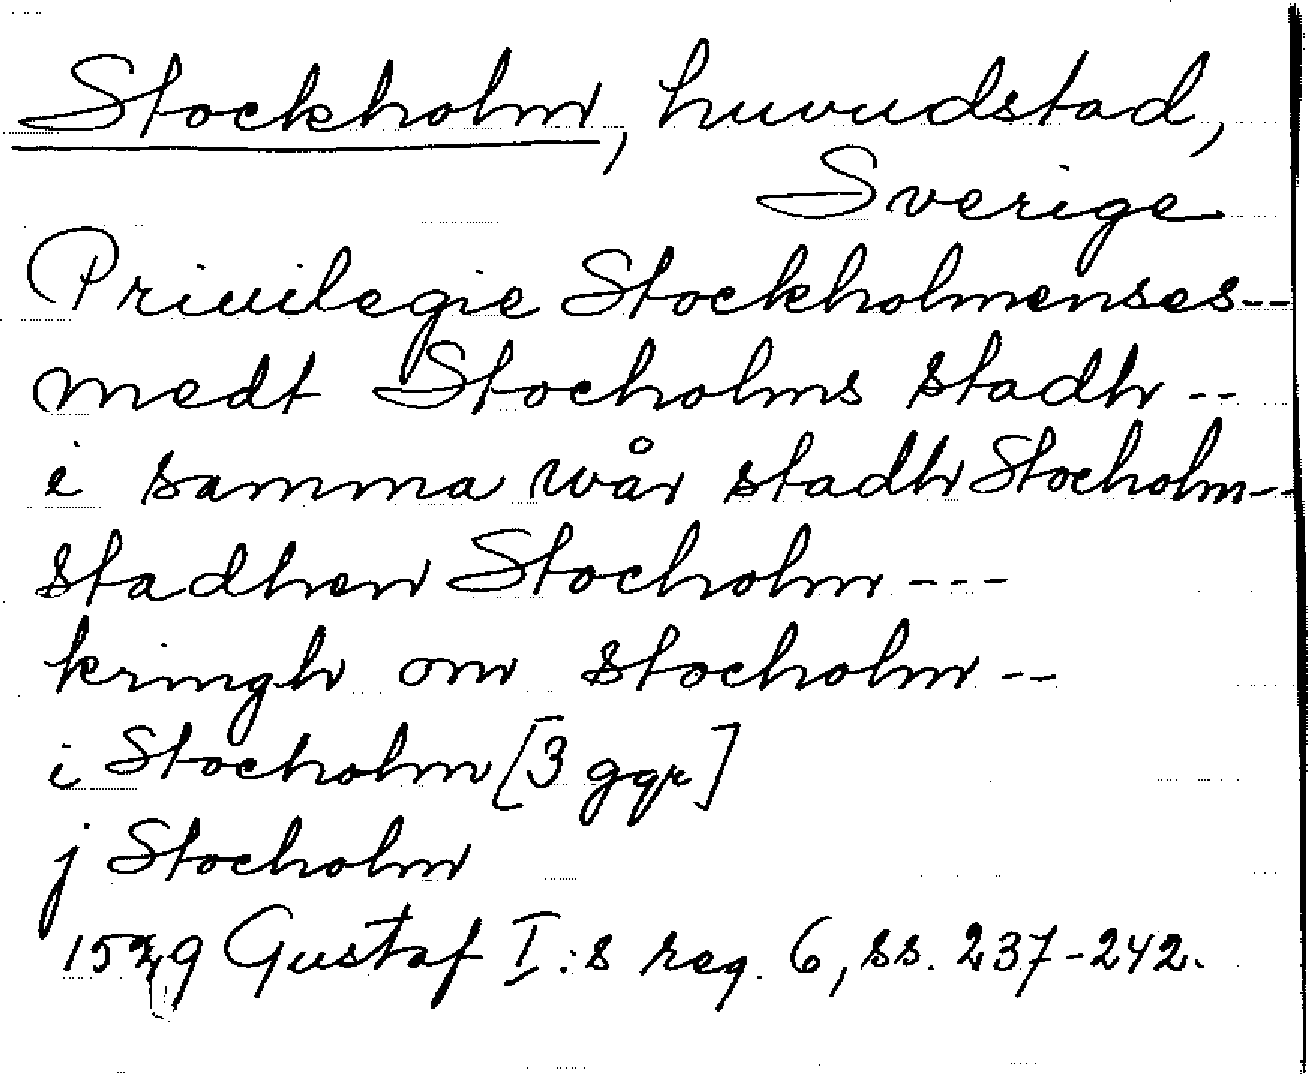 Stockholm, huvudstad,
Sverige
Privilegie Stockholmenses--
medt Stocholms stadh --
i samma wår stadh Stocholm--
stadhen Stocholm ---
kringh om stocholm --
i Stocholm [3 ggr]
j Stocholm
1529 Gustaf I:s reg. 6, ss. 237-242.